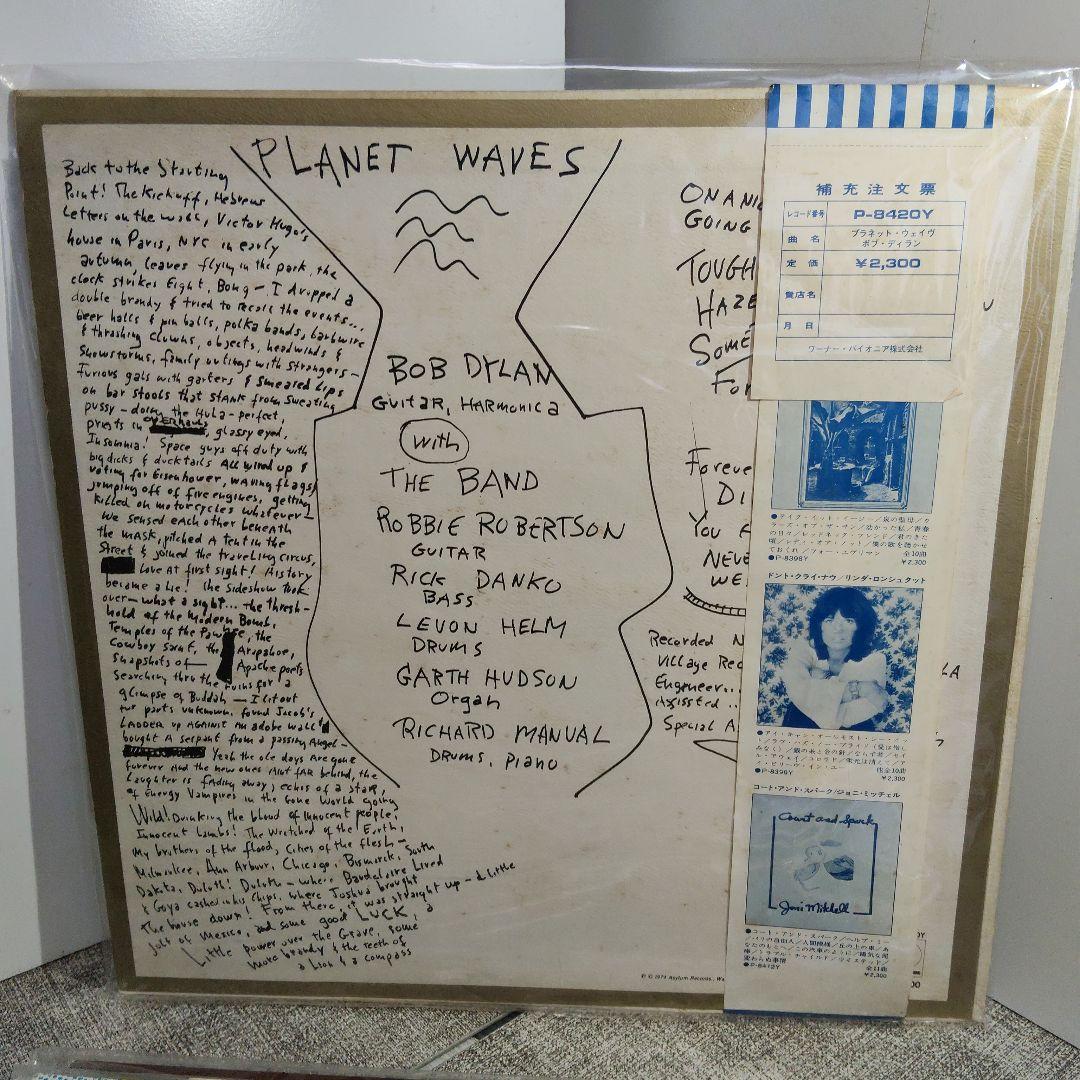 PLANET WAVES
Back to the Starting
Point! The Kickoff, Hebrew
Letters on the wall, Victor Hugo's
house in Paris, NYC in early
autumn, leaves flying in the park, the
clock strikes Eight, Bong - I dropped a
double brandy & tried to recall the events...
beer halls & pin balls, polka bands, barbwire
& thrashing clowns, objects, headwinds &
Snowstorms, family outings with strangers -
Furious gals with garters & Smeared Lips
on bar stools that stank from sweating
pussy - doing the Hula - perfect,
priests in overhauls, glassy eyed,
Insomnia! Space guys off duty with
big dicks & ducktails All wired up &
voting for Eisenhower, waving flags &
jumping off of fire engines, getting
killed on motorcycles whatever -
We sensed each other beneath
the mask, pitched a tent in the
Street & joined the traveling circus,
Love at first sight! History
became a Lie! The sideshow took
over - what a sight... the thresh-
hold of the Modern Bomb,
Temples of the Pawnee, the
Cowboy saint, the Arapahoe,
snapshots of Apache poets
searching thru the ruins for a
glimpse of Buddah - I lit out
for parts unknown, found Jacob's
Ladder up against an adobe wall &
bought a serpent from a passing Angel -
Yeah the ole days Are gone
forever And the new ones Aint fAR behind, the
Laughter is fading away, echos of a star,
of Energy Vampires in the Gone World going
Wild! Drinking the blood of innocent people,
Innocent Lambs! The Wretched of the Earth,
My brothers of the flood, Cities of the flesh -
Milwaukee, Ann Arbor, Chicago, Bismarck, South
Dakota, Duluth! Duluth - where Baudelaire Lived
& Goya cashed in his Chips, where Joshua brought
the house down! From there, it was straight up - a little
jolt of Mexico, and some good LUCK, a
Little power over the Grave, some
more brandy & the teeth of
a Lion & a compass
BOB DYLAN
Guitar, HARMONICA
with
THE BAND
ROBBIE ROBERTSON
GUITAR
RICK DANKO
BASS
LEVON HELM
DRUMS
GARTH HUDSON
Organ
RICHARD MANUAL
DRUMS, PIANO
ON A NI
GOING
TOUGH
HAZE
SOME
FOR
Foreve
DI
YOU A
NEVE
WE
Recorded N
Village Rec
Engeneer...
Assisted..
Special A
℗ © 1974 Asylum Records.
補充注文票
レコード番号 P-8420Y
曲名 プラネット・ウェイヴ
ボブ・ディラン
定価 ¥2,300
貴店名
月日
ワーナー・パイオニア株式会社
●テイク・イット・イージー/泉の聖母/カ
ラーズ・オブ・ザ・サン/幼かった私/青春
の日々/レッドネック・フレンド/君のきた
頃/レディ・オア・ノット/僕の歌を聴かせ
ておくれ/フォー・エヴリマン 全10曲
●P-8398Y ¥2,300
ドント・クライ・ナウ/リンダ・ロンシュタット
●P-8399Y ¥2,300
コート・アンド・スパーク/ジョニ・ミッチェル
Court and Spark
Joni Mitchell
●コート・アンド・スパーク/ヘルプ・ミー
/パリの自由人/人間模様/丘の上の車/あ
なたのもとへ/この汽車のように/陽気な泥
棒/トラブル・チャイルド/ツイステッド/
変わらぬ事情 全11曲
●P-8412Y ¥2,300